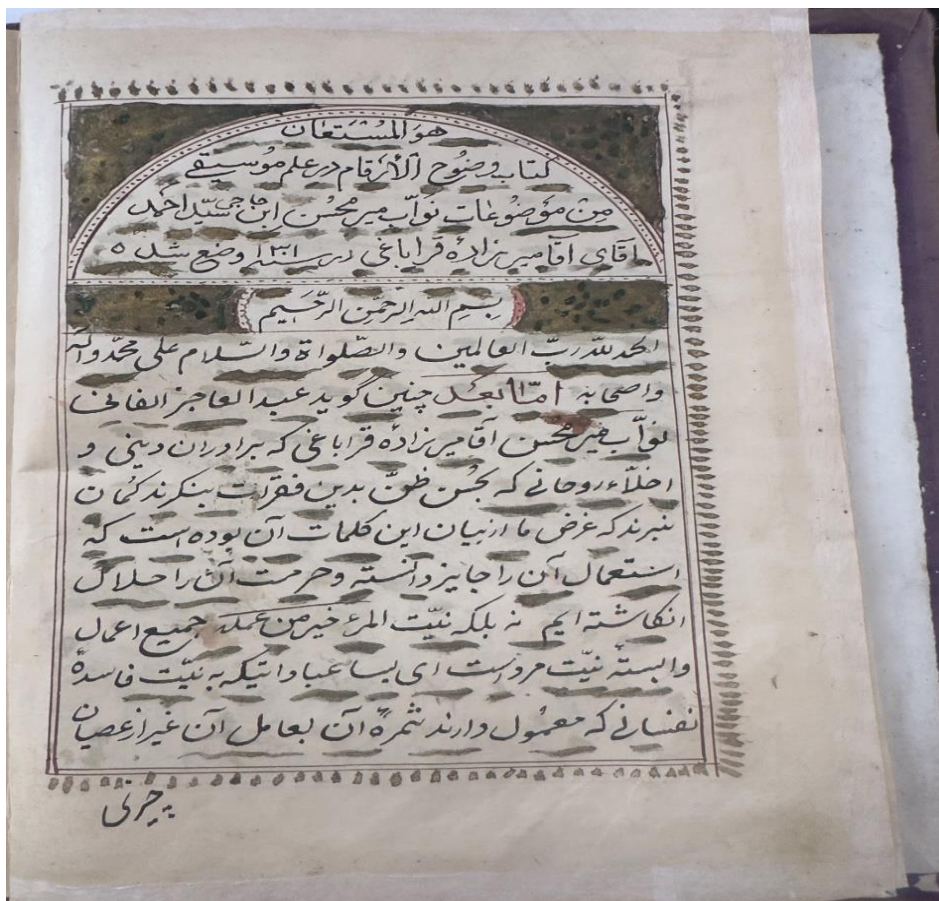 هو المستعان
کتاب وضوح الأرقام در علم موسیقی
من موضوعات نواب میر محسن ابن حاجی سید احمد
اقای اقا میرزاده قراباغی در سنه ۱۳۰۱ وضع شد ٥
بسم الله الرحمن الرحیم
الحمد لله رب العالمین والصلواة والسلام علی محمد وآله
واصحابه اما بعد چنین گوید عبد العاجز الفانی
نواب میر محسن آقا میرزاده قراباغی که برادران دینی و
اخلاء روحانی که بحسن ظن بدین فقرات بنگرند گمان
نبرند که غرض ما از بیان این کلمات آن بوده است که
استعمال آن را جایز دانسته و حرمت آن را حلال
انگاشته ایم نه بلکه نیت المرء خیر من عمله جمیع اعمال
وابستهٔ نیت مرد است ای بسا عباداتیکه به نیت فاسدهٔ
نفسانی که معمول دارند ثمرهٔ آن بعامل آن غیر از عصیان
چیزی